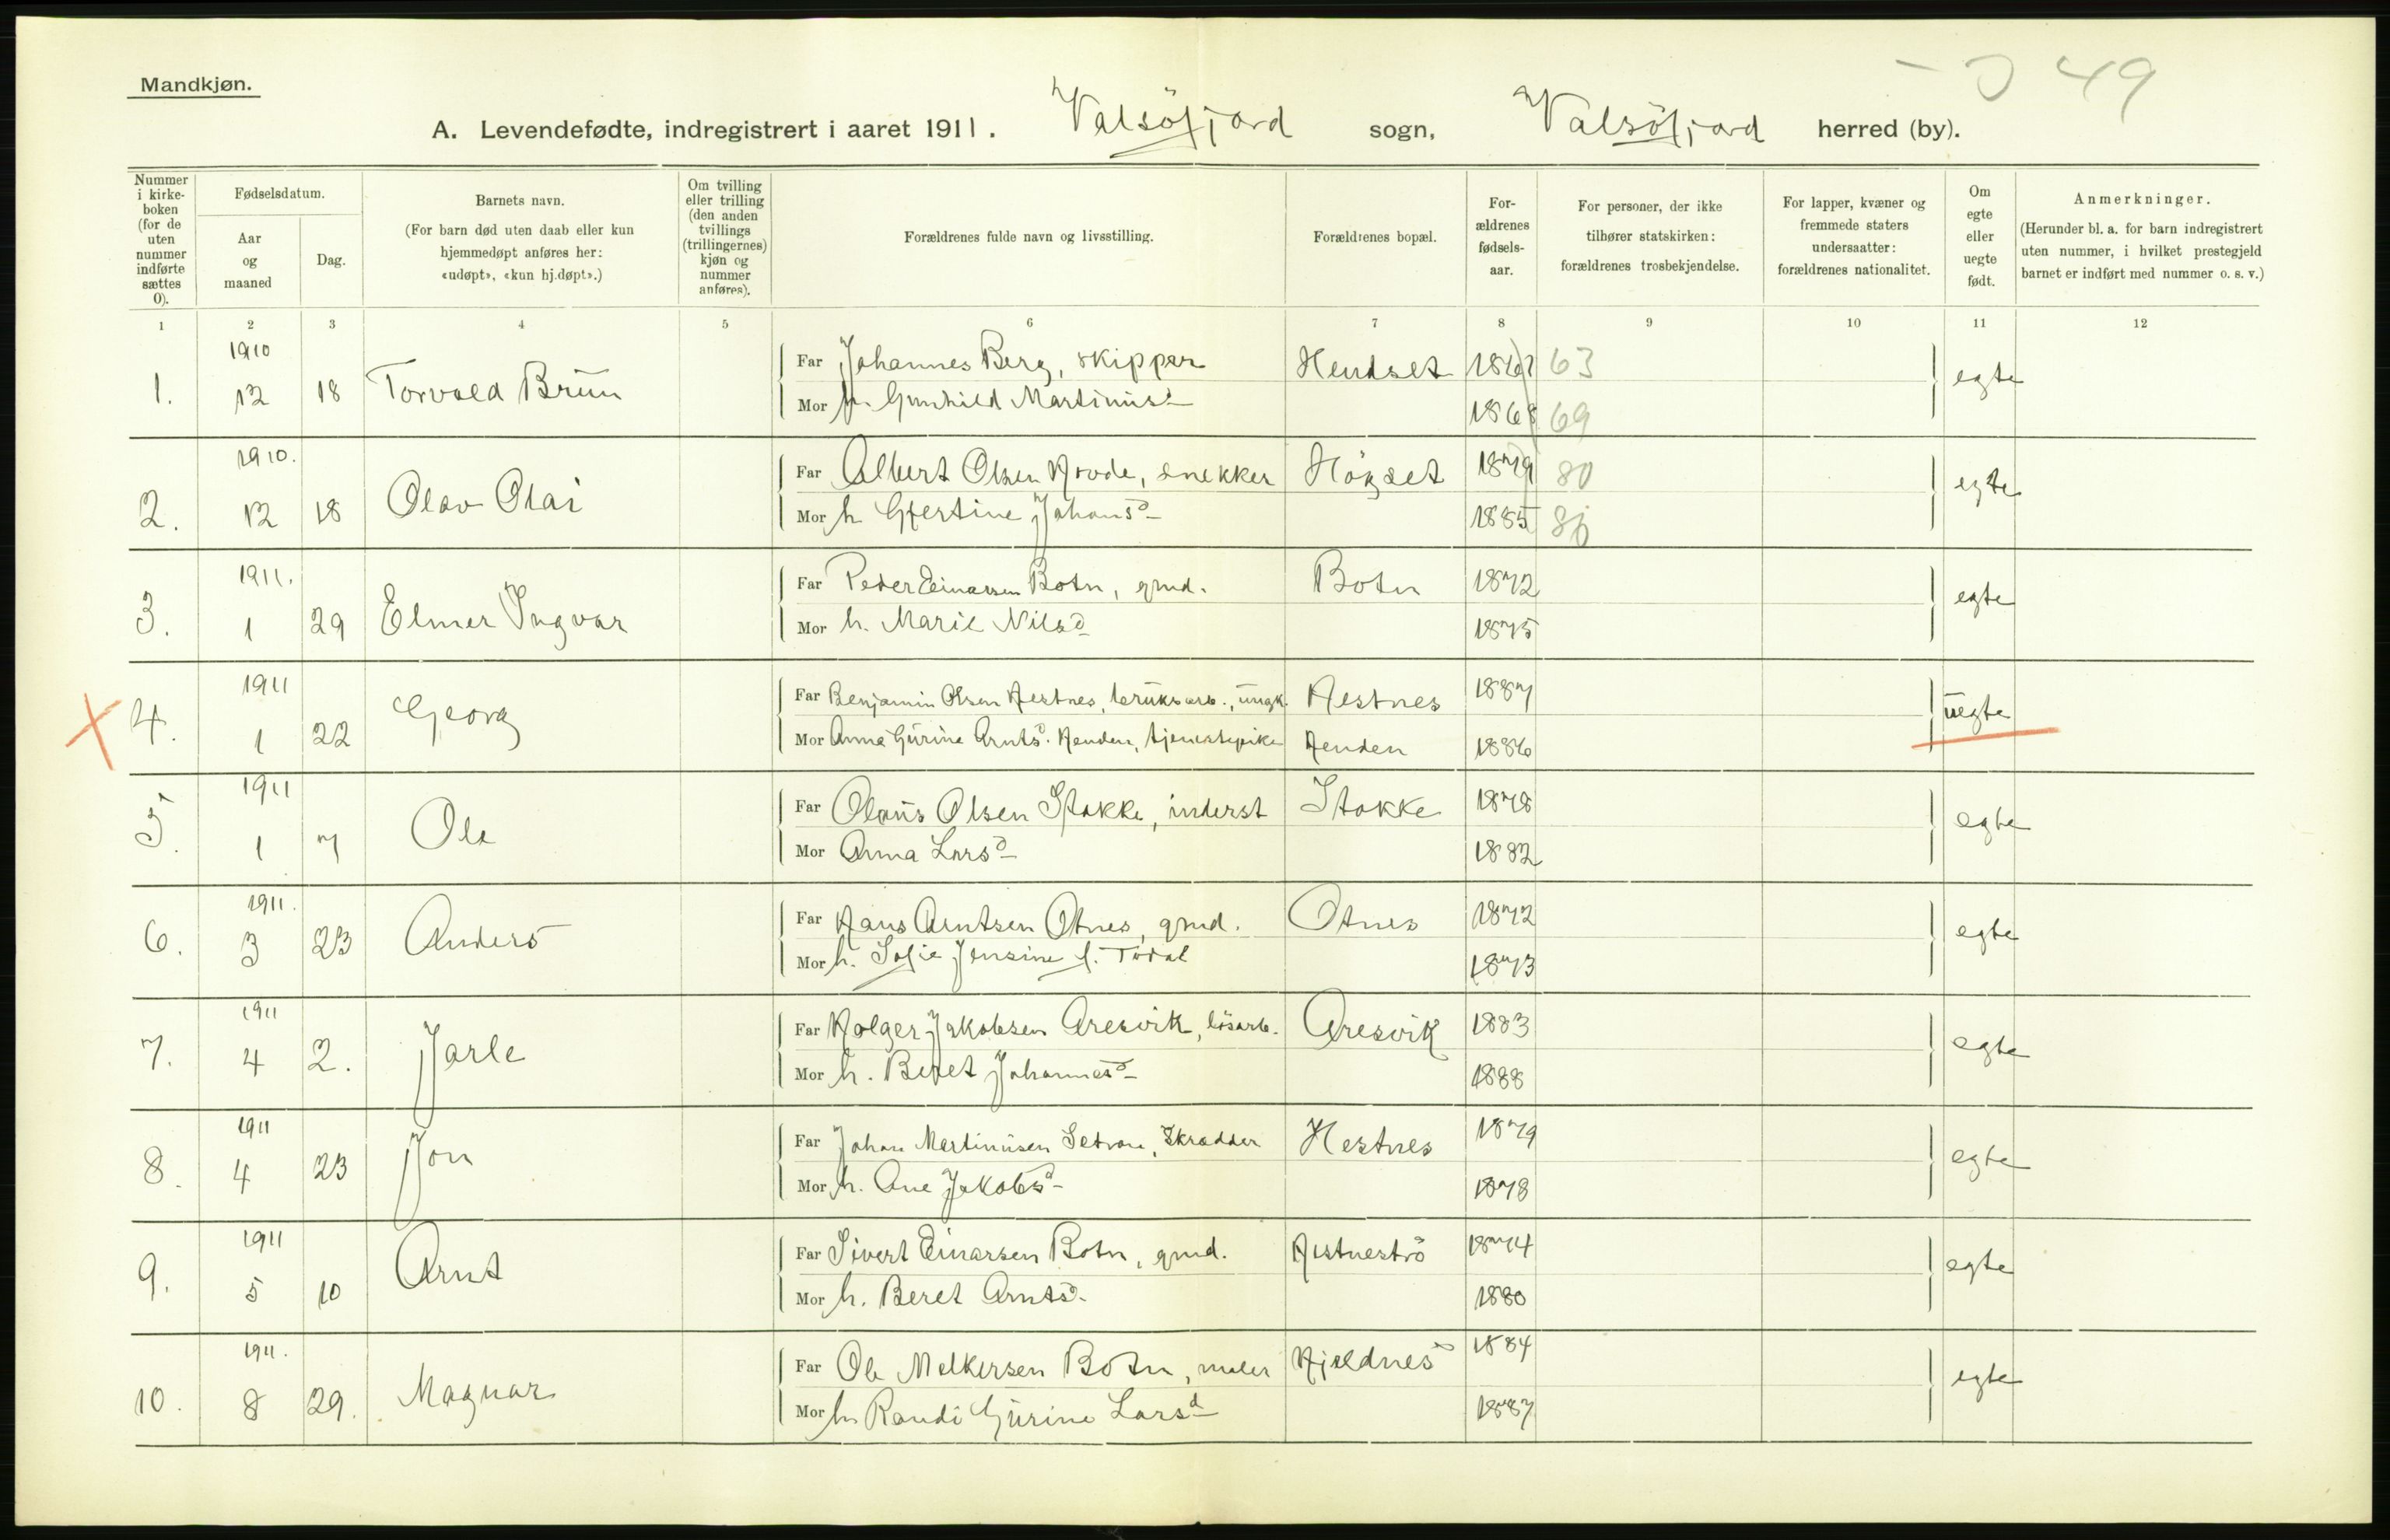 Mandkjøn.
49
A. Levendefødte, indregistrert i aaret 1911. Valsöfjord sogn, Valsöfjord herred (by).
Nummer i kirke-boken (for de uten nummer indførte sættes 0).
Fødselsdatum.
Aar og maaned
Dag.
Barnets navn.
(For barn død uten daab eller kun hjemmedøpt anføres her: «udøpt», «kun hj.døpt».)
Om tvilling eller trilling (den anden tvillings (trillingernes) kjøn og nummer anføres).
Forældrenes fulde navn og livsstilling.
Forældrenes bopæl.
For-ældrenes fødsels-aar.
For personer, der ikke tilhører statskirken: forældrenes trosbekjendelse.
For lapper, kvæner og fremmede staters undersaatter: forældrenes nationalitet.
Om egte eller uegte født.
Anmerkninger.
(Herunder bl. a. for barn indregistrert uten nummer, i hvilket prestegjeld barnet er indført med nummer o. s. v.)
1 2 3 4 5 6 7 8 9 10 11 12
1910
1. 12 18 Torvald Brun
Far Johannes Berg, skipper Hendset 1867 63
Mor h. Gunhild Martinusd 1868 69
egte
1910.
2. 12 18 Olav Olai
Far Albert Olsen Rovde, snekker Högset 1879 80
Mor h Gjertine Johansd 1885
egte
1911.
3. 1 29 Elmer Ingvar
Far Peder Einarsen Botn, gmd. Botn 1872
Mor h. Marie Nilsd 1875
egte
1911
4. 1 22 Georg
Far Benjamin Olsen Hestnes, bruksarb., ungk. Hestnes 1887
Mor Anna Gurine Arntsd. Henden, tjenestepike Henden 1886
uegte
1911
5. 1 7 Ole
Far Olaus Olsen Stokke, inderst Stokke 1878
Mor Anna Larsd 1882
egte
1911.
6. 3 23 Anders
Far Hans Arntsen Otnes, gmd. Otnes 1872
Mor h. Sofie Jensine f. Todal 1873
egte
1911
7. 4 2. Jarle
Far Holger Jakobsen Aresvik, lösarb. Aresvik 1883
Mor h. Beret Johannesd 1888
egte
1911
8. 4 23 Jon
Far Johan Martinusen Setvon, Skrædder Hestnes 1879
Mor h. Ane Jakobsd 1878
egte
1911
9. 5 10 Arnt
Far Sivert Einarsen Botn, gmd. 1874
Mor h. Beret Arntsd. 1880
egte
1911.
10. 8 29. Magnar
Far Ole Melkersen Botn, maler Kjeldnes 1884
Mor h. Randi Gurine Larsd 1887
egte